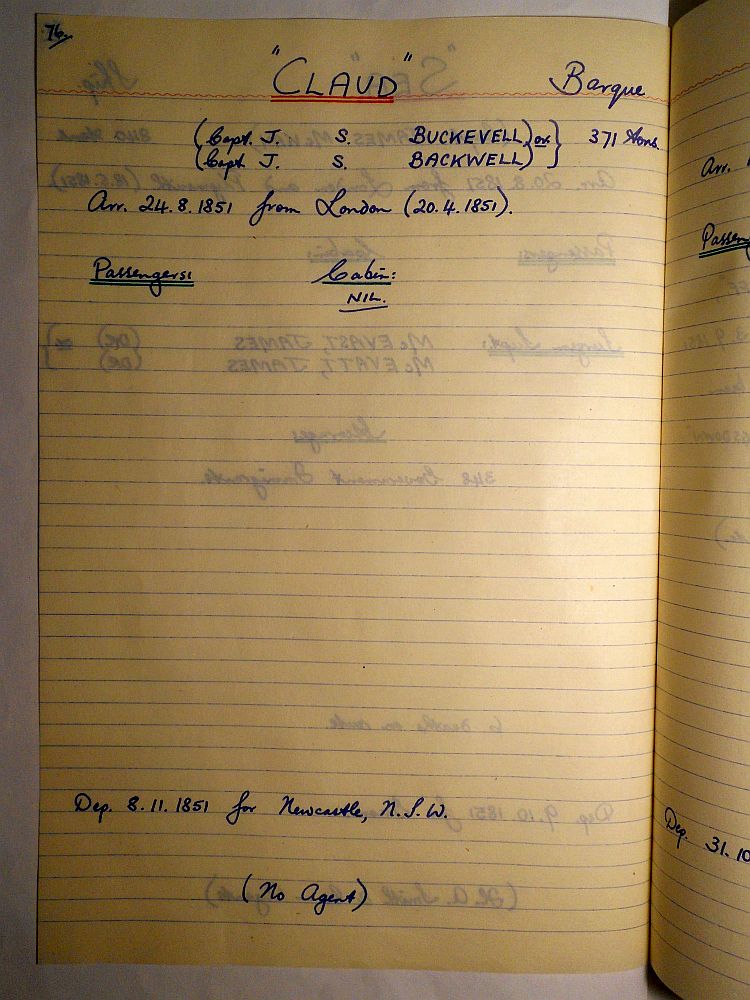 76.
"CLAUD" Barque
(Capt. J. S. BUCKEVELL) or } 371 tons.
(Capt. J. S. BACKWELL)
Arr. 24.8.1851 from London (20.4.1851).
Passengers: Cabin:
NIL.
Dep. 8.11.1851 for Newcastle, N.S.W.
(No Agent)
Arr.
Dep. 31.10